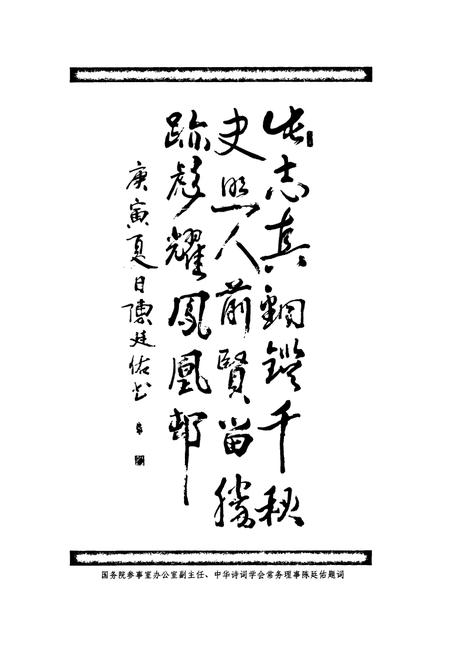 此志真銅鑑千秋
史照人前賢留勝
跡耀鳳凰邨
庚寅夏日陳廷佑书
国务院参事室办公室副主任、中华诗词学会常务理事陈廷佑题词